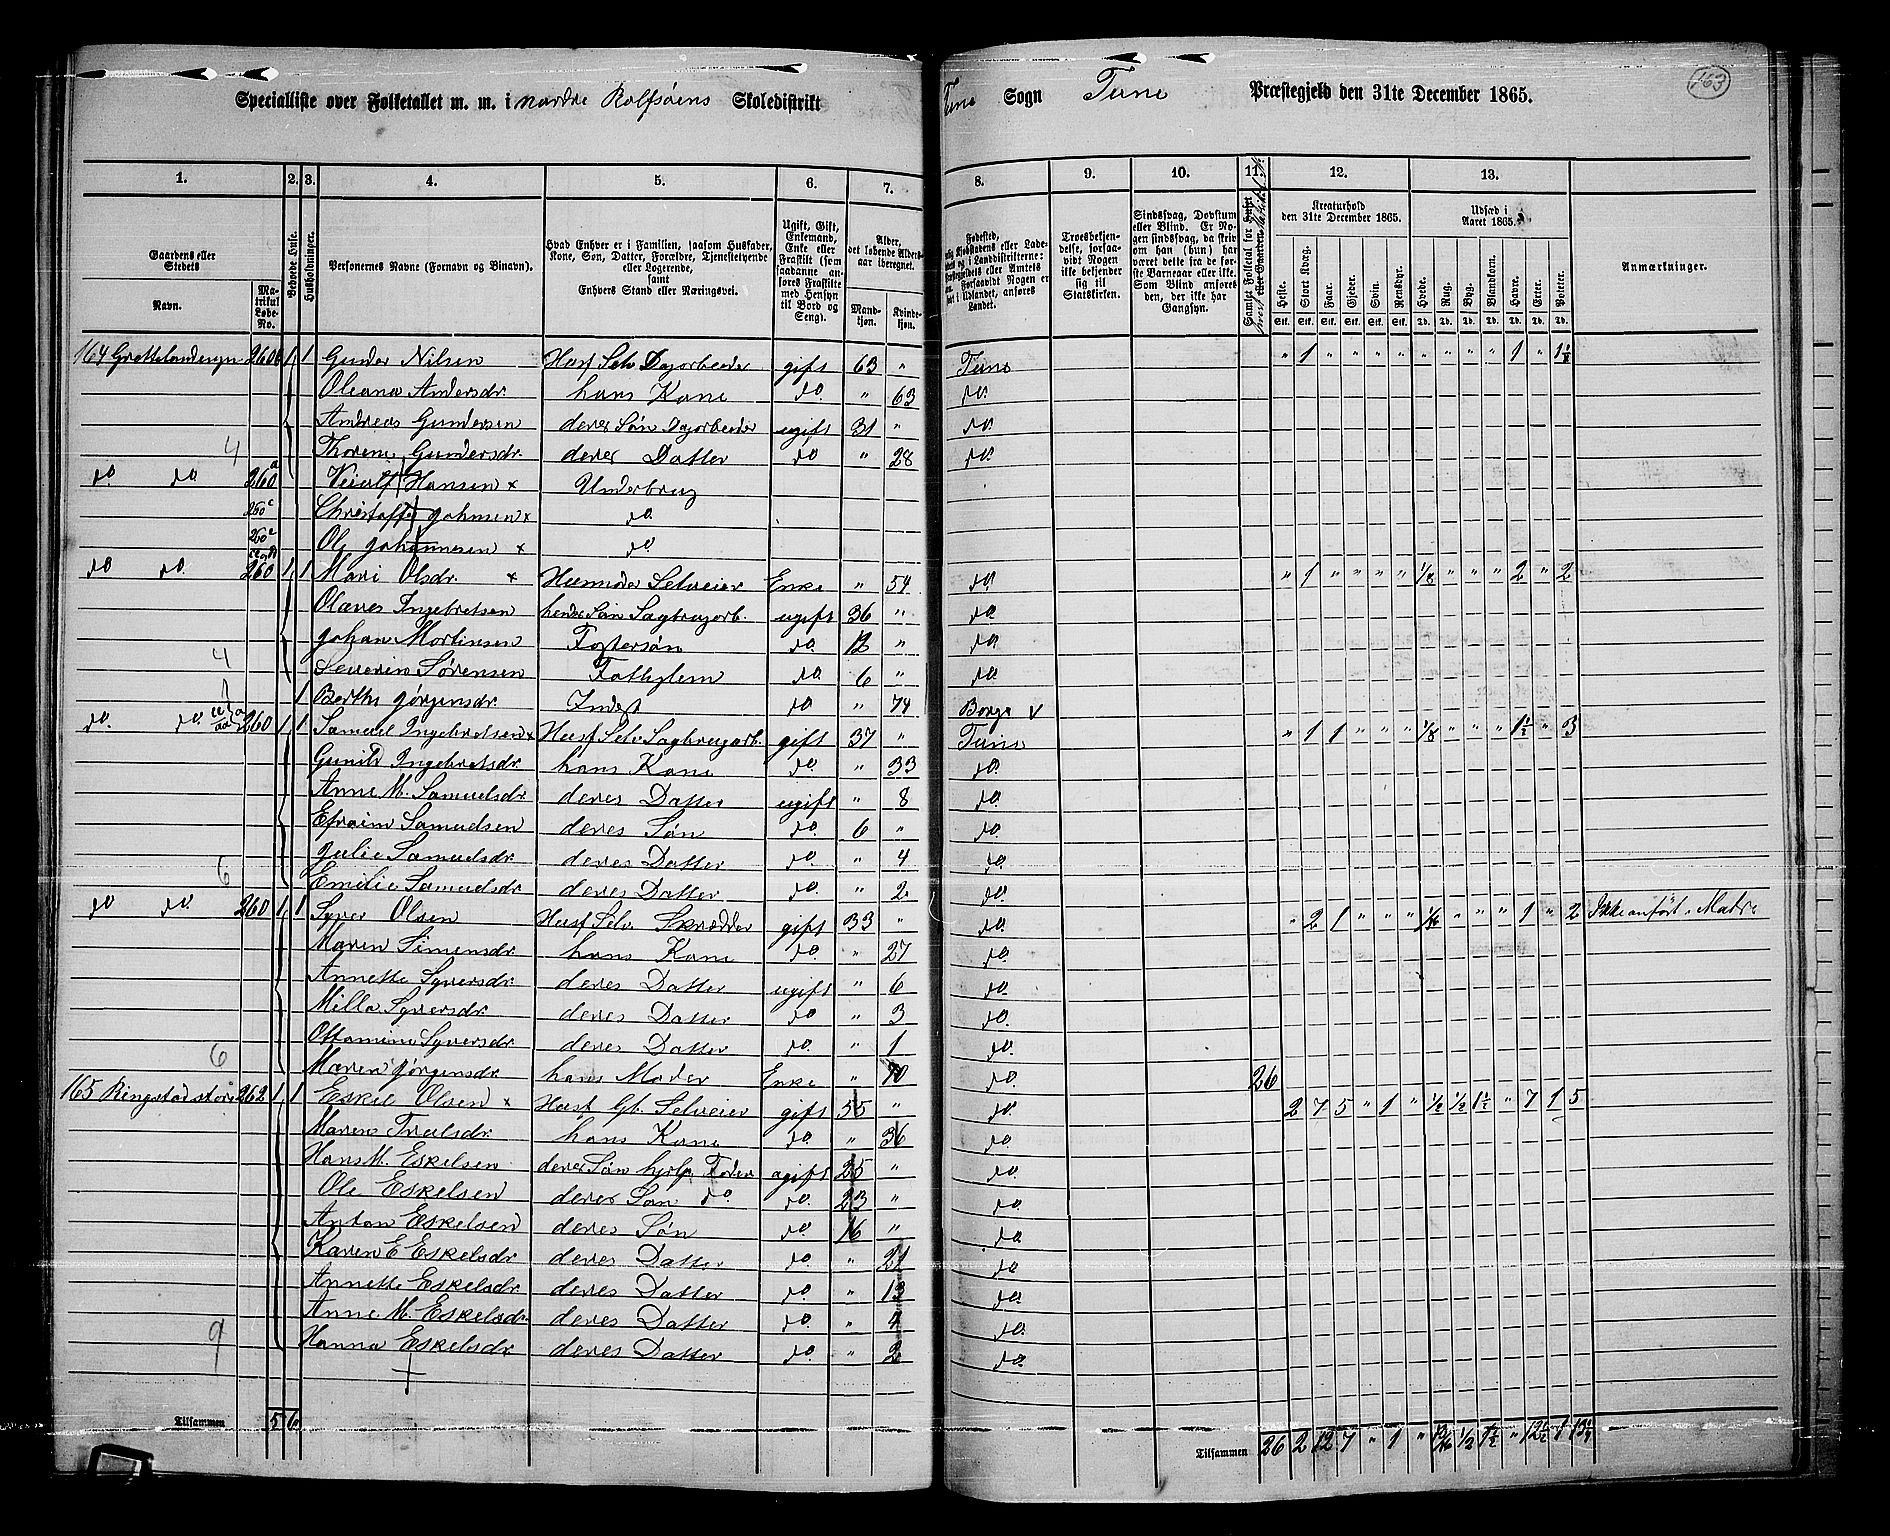 Specialliste over Folketallet m. m. i nordre Rolfsøens Skoledistrikt Tune Sogn Tune Præstegjeld den 31te December 1865. 163
1. 2. 3. 4. 5. 6. 7. 8. 9. 10. 11. 12. 13.
Gaardens eller Stedets
Navn.
Matrikul Løbe-No.
Beboede Huse.
Husholdninger.
Personernes Navne (Fornavn og Binavn).
Hvad Enhver er i Familien, saasom Husfader, Kone, Søn, Datter, Forældre, Tjenestetyende eller Logerende, samt Enhvers Stand eller Næringsvei.
Ugift, Gift, Enkemand, Enke eller Fraskilt (som saadanne anføres Fraskilte med Hensyn til Bord og Seng).
Alder, det løbende Aldersaar iberegnet.
Mandkjøn. Kvindekjøn.
Troesbekjendelse, forsaavidt Nogen ikke bekjender sig til Statskirken.
Sindssvag, Døvstum eller Blind. Er Nogen sindssvag, da skriv om han (hun) har været dette fra de første Barneaar eller ikke. Som Blind anføres den, der ikke har Gangsyn.
Kreaturhold den 31te December 1865.
Heste. Stort Kvæg. Faar. Gjeder. Svin. Rensdyr.
Udsæd i Aaret 1865.
Hvede. Rug. Byg. Blandkorn. Havre. Erter. Poteter.
Anmærkninger.
164 260b 1 1 Gunder Nilsen Husf Selv Dagarbeider gift 63 " Tune " 1 " " " " " " " " 1 " 1 1/8
Oleana Andersdr. hans Kone do. " 63 do.
Andreas Gundersen deres Søn Dagarbeider ugift 31 " do.
4 Thorene Gundersdr. deres Datter do " 28 do.
do. do 260a Hansen x Underbrug
260c Christoffer Johnsen x do.
260e Ole Johannesen x do.
do do. 260 1 1 Mari Olsdr. x Huusmoder Selveier Enke " 54 do. " 1 " " " " 1/8 " " " 2 " 2
Olaves Ingebretsen hendes Søn Sagbrugarb. ugift 36 " do.
Johan Martinsen Fostersøn do. 12 " do.
4 Severin Sørensen Fattiglem do. 6 " do.
1 Berthe Jørgensdr. Inderst do " 74 Borge V
do. do. 260 1 1 Samuel Ingebretsen x Husf Selv Sagbrugarb. gift 37 " Tune " 1 1 " " " 1/8 " " " 1 1/2 " 3
Gunild Ingebretsdr. hans Kone do. " 33 do.
Anne M. Samuelsdr. deres Datter ugift " 8 do.
Efraim Samuelsen deres Søn do. 6 " do.
Julie Samuelsdr. deres Datter do. " 4 do.
6 Emilie Samuelsdr. deres Datter do. " 2 do.
do do. 260 1 1 Syver Olsen Husf Selv. Skrædder gift 33 " do. " 2 1 " " " 1/16 " " " 1 " 2 Ikke anført i Matr.
Maren Simensdr. hans Kone do. " 27 do.
Annette Syversdr. deres Datter ugift " 6 do.
Milla Syversdr. deres Datter do " 3 do.
Ottomine Syversdr. deres Datter do. " 1 do.
6 Maren Jørgensdr. hans Moder Enke " 70 do. 26
165 Ringstad store 262 1 1 Eskil Olsen x Husf Gb. Selveier gift 55 " do. 2 7 5 " 1 " 1/2 1/2 1 1/2 " 7 1 5
Maren Truelsdr. hans Kone do. " 36 do.
Hans M. Eskelsen deres Søn hjelp Fader ugift 25 " do.
Ole Eskelsen deres Søn do. do. 23 " do.
Anton Eskelsen deres Søn do 16 " do.
Karen E Eskelsdr. deres Datter do. " 21 do.
Annette Eskelsdr. deres Datter do. " 13 do.
Anne M. Eskelsdr. deres Datter do. " 4 do.
9 Hanna Eskelsdr. deres Datter do. " 2 do.
Tilsammen 5 6
Tilsammen 26 2 12 7 " 1 " 1/2 1 1/2 " 12 1/2 1 13